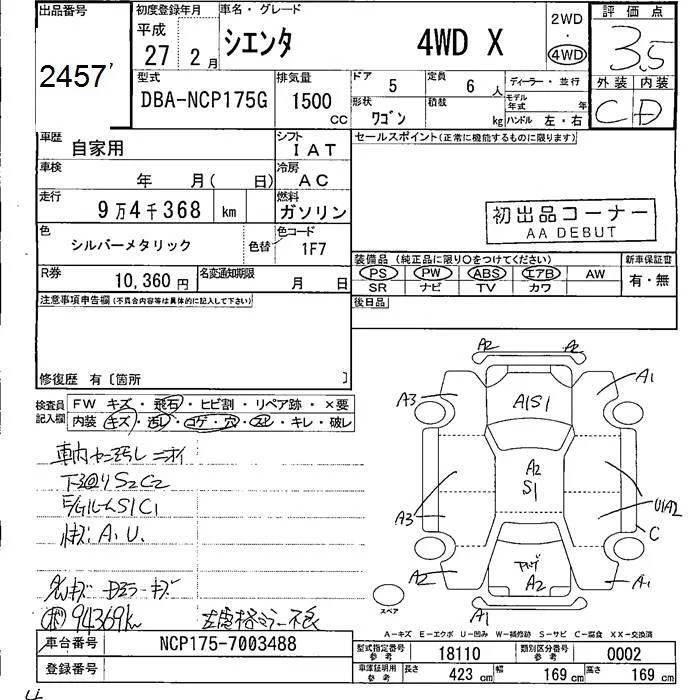 出品番号
2457
初度登録年月
平成
27 2月
車名・グレード
シエンタ 4WD X
2WD
・
4WD
評価点
3.5
型式
DBA-NCP175G
排気量
1500
CC
ドア
5
定員
6 人
ディーラー・並行
形状
ワゴン
積載
kg
モデル年式 年
ハンドル 左・右
外装 内装
C D
車歴
自家用
シフト
IAT
セールスポイント(正常に機能するものに限ります)
車検
年 月( 日)
冷房
AC
走行
9万4千368 km
燃料
ガソリン
初出品コーナー
AA DEBUT
色
シルバーメタリック
色替
色コード
1F7
装備品 (純正品に限り○をつけてください)
新車保証書
PS PW ABS エアB AW
有・無
SR ナビ TV カワ
R券
10,360円
名変通知期限
月 日
後日品
注意事項申告欄(不具合内容等は具体的に記入して下さい)
修復歴 有〔箇所 〕
検査員記入欄
FW キズ・飛石・ヒビ割・リペア跡・×要
内装 キズ・汚レ・コゲ・穴・スレ・キレ・破レ
車内ヤニ汚レ ニオイ
S2C2
E/GルームS1C1
A.U.
94369km
A2 A2
A3 A1S1 A1
A2
S1
A3 U1A2
C
A2 A2 A1
A1
スペア
A-キズ E-エクボ U-凹み W-補修跡 S-サビ C-腐食 XX-交換済
車台番号
NCP175-7003488
登録番号
型式指定番号
参考
18110
類別区分番号
参考
0002
車庫証明用
参考
長さ
423 cm
幅
169 cm
高さ
169 cm